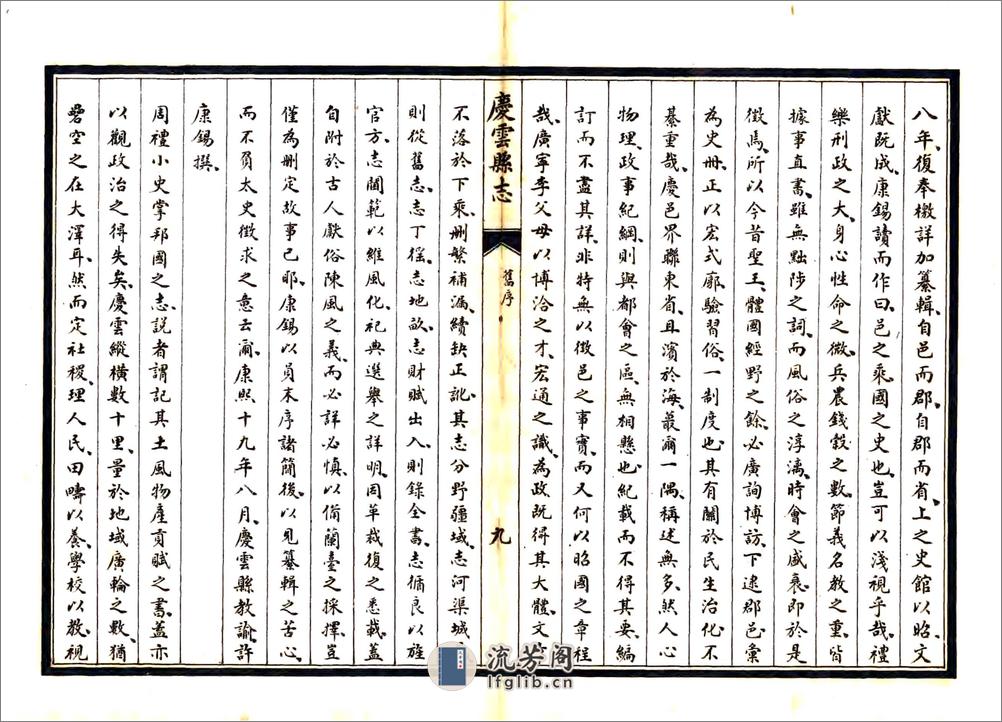 八年、復奉檄詳加纂輯、自邑而郡、自郡而省、上之史館、以昭、文
獻既成、康錫讀而作曰、邑之乘、國之史也、豈可以淺視乎哉、禮
樂刑政之大、身心性命之微、兵農錢穀之數、節義名教之重、皆
據事直書、雖無黜陟之詞、而風俗之淳漓、時會之盛衰、即於是
徵焉、所以今昔聖王、體國經野之餘、必廣詢博訪、下逮郡邑、彙
為史冊、正以宏式廓、驗習俗、一制度也、其有關於民生治化、不
綦重哉、慶邑界聯東省、且濱於海、最爾一隅、稱述無多、然人心
物理、政事紀綱、則與都會之區、無相懸也、紀載而不得其要、編
訂而不盡其詳、非特無以徵邑之事實、而又何以昭國之章程
哉、廣寧李父母、以博洽之才、宏通之識、為政既得其大體、文
慶雲縣志
舊序
九
不落於下乘、刪繁補漏、續缺正訛、其志分野疆域、志河渠城
則從舊志、志丁徭、志地畝、志財賦出入、則錄全書、志循良以旌
官方、志閫範以維風化、祀典選舉之詳明、因革裁復之悉載、蓋
自附於古人獻俗陳風之義、而必詳必慎、以備蘭臺之採擇、豈
僅為刪定故事已耶、康錫以員末序諸簡後、以見纂輯之苦心、
而不負太史徵求之意云爾、康熙十九年八月、慶雲縣教諭許
康錫撰、
周禮小史掌邦國之志、說者謂記其土風物產貢賦之書、蓋亦
以觀政治之得失矣、慶雲縱橫數十里、量於地域廣輪之數、猶
礨空之在大澤耳、然而定社稷、理人民、田疇以養、學校以教、視
流芳阁
lfglib.cn